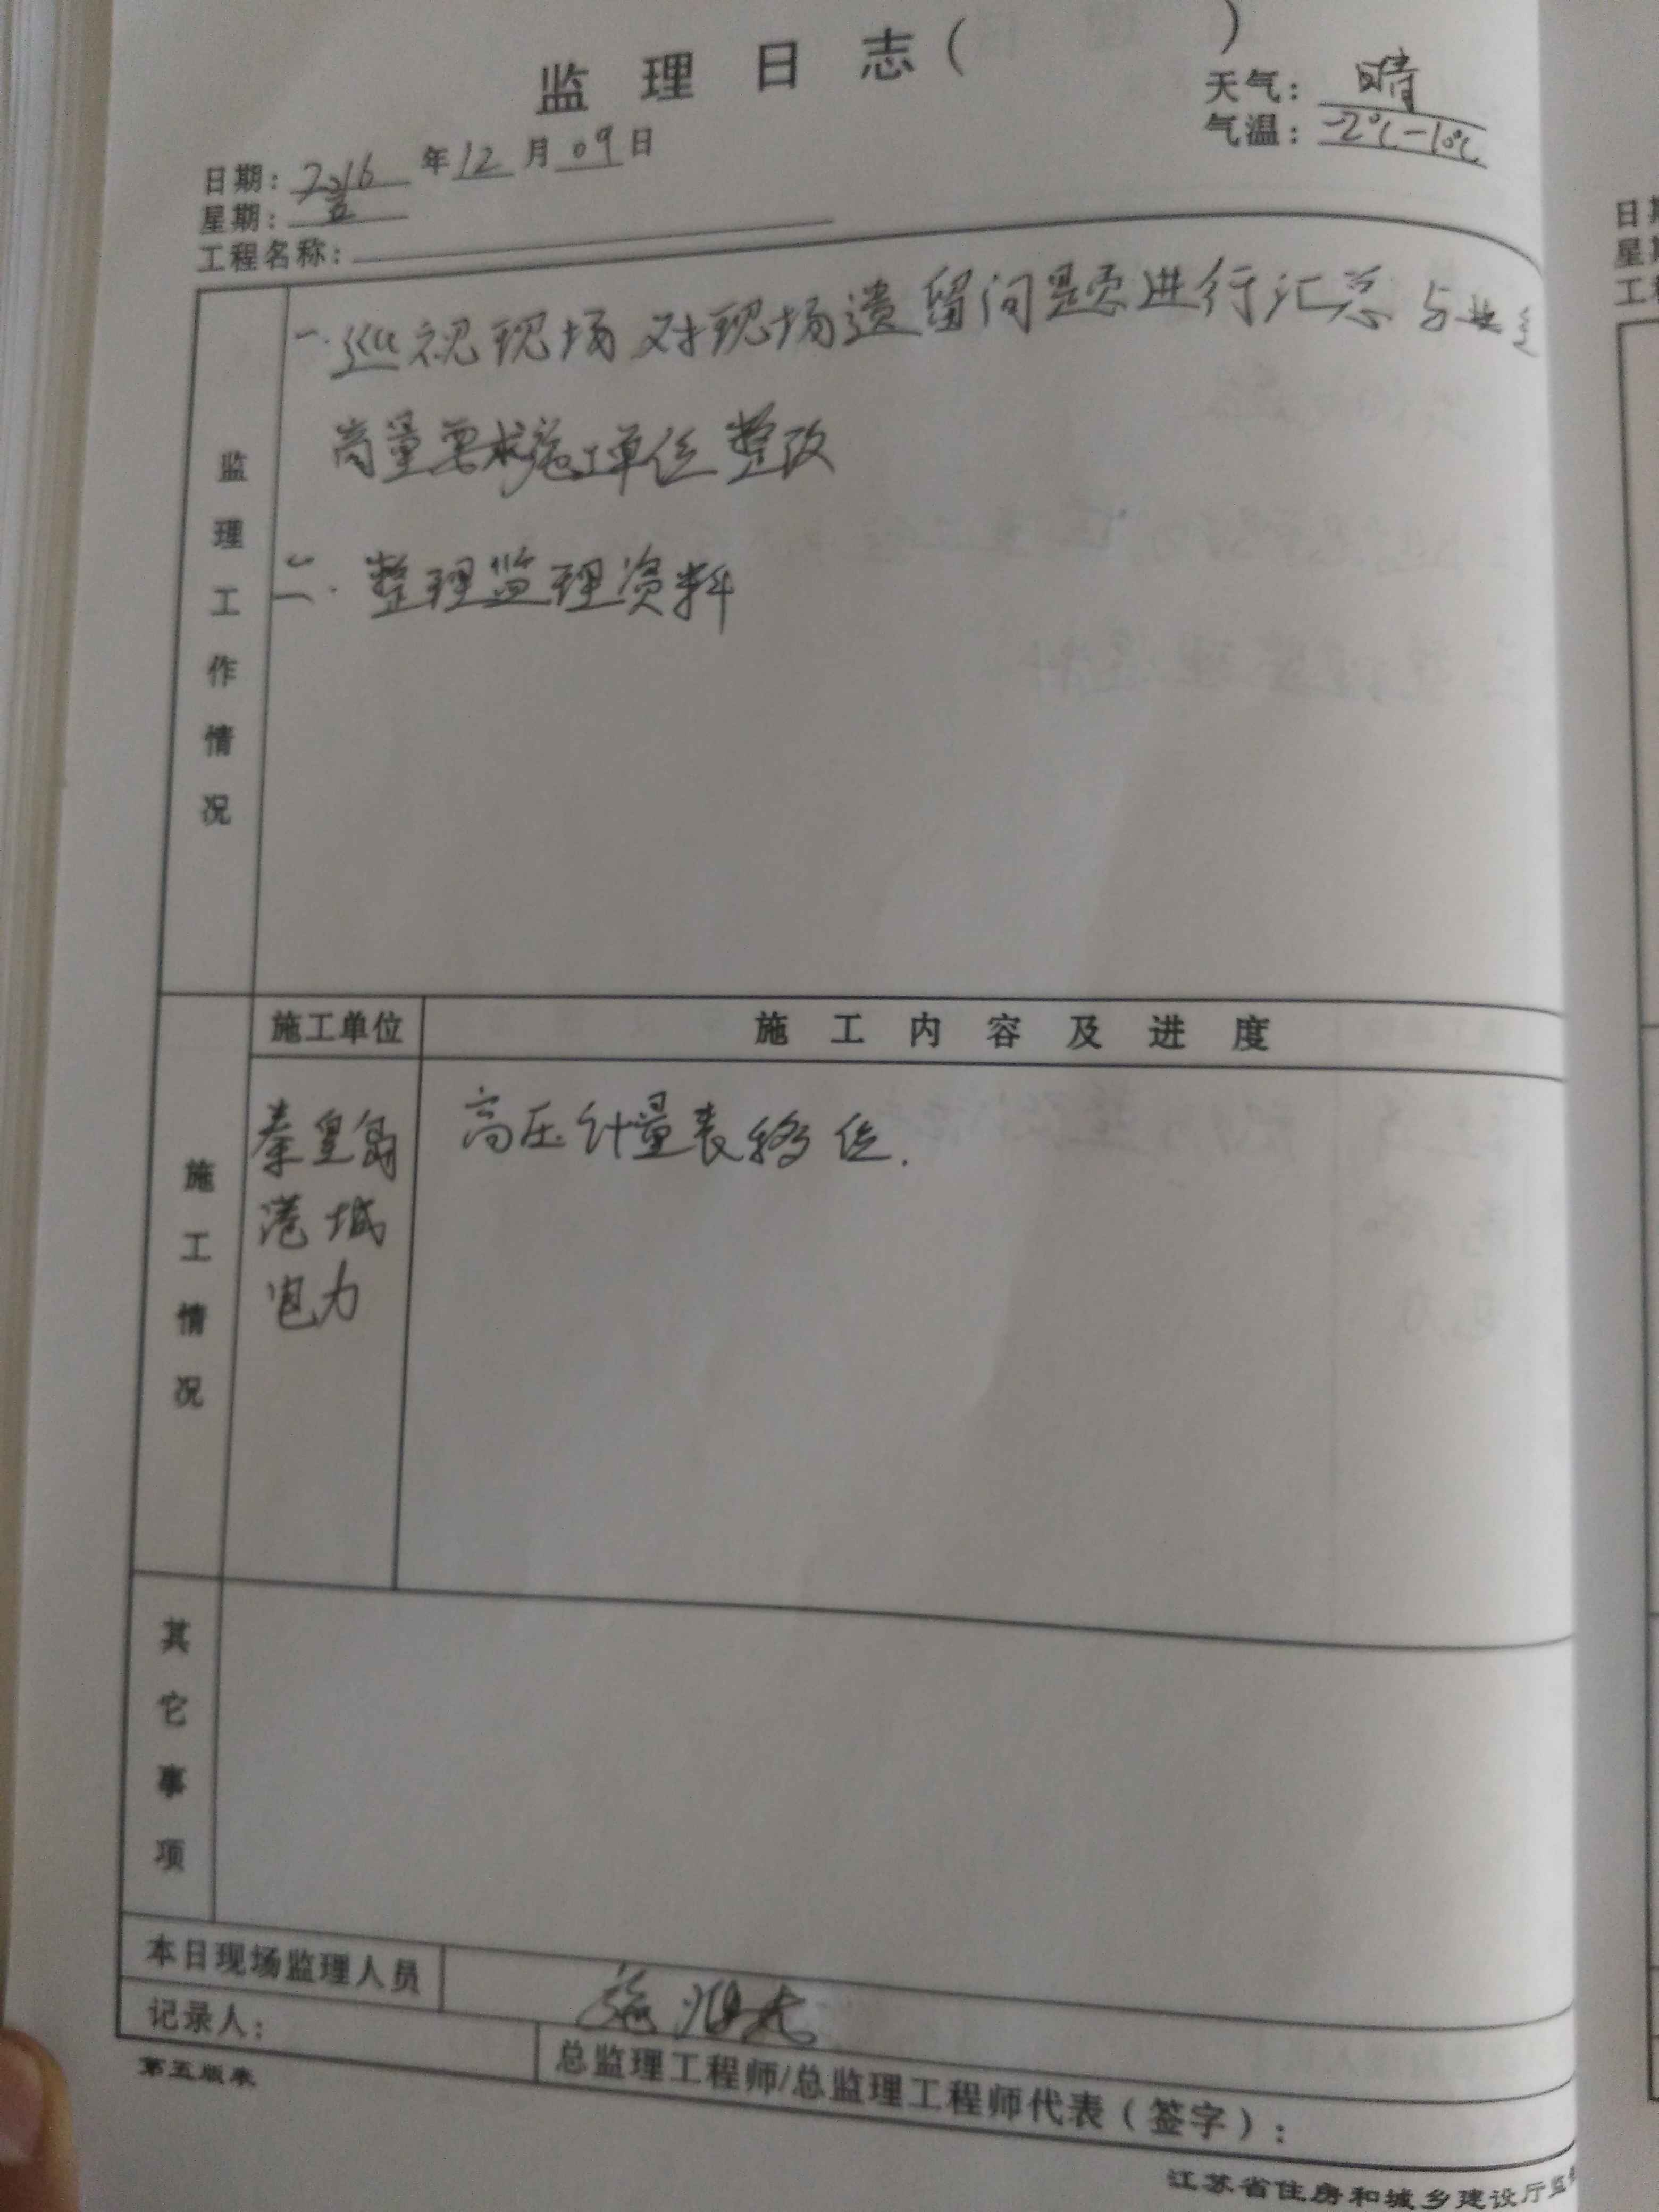 监理日志( )
天气: 晴
气温: -2℃-10℃
日期: 2016 年 12 月 09 日
星期: 五
工程名称:
监理工作情况
一.巡视现场 对现场遗留问题进行汇总 与业主
商量要求施工单位整改
二.整理监理资料
施工情况
施工单位 施工内容及进度
秦皇岛 高压计量表移位.
港城
电力
其它事项
本日现场监理人员
记录人:
总监理工程师/总监理工程师代表(签字):
第五版表
江苏省住房和城乡建设厅监
日
星
工